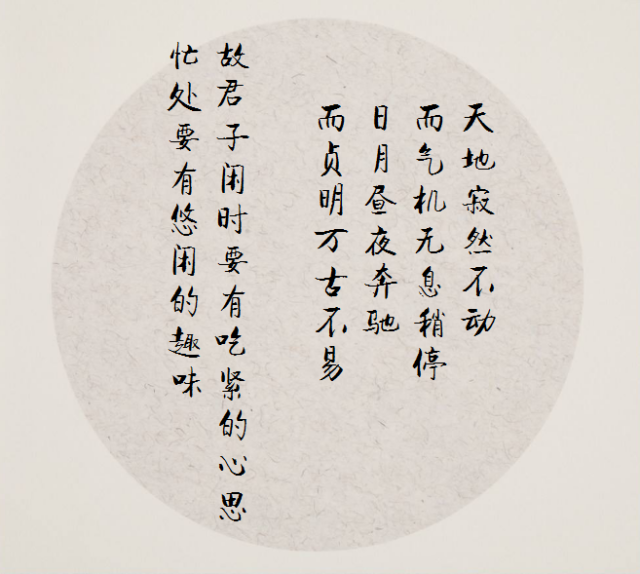 天地寂然不动
而气机无息稍停
日月昼夜奔驰
而贞明万古不易
故君子闲时要有吃紧的心思
忙处要有悠闲的趣味